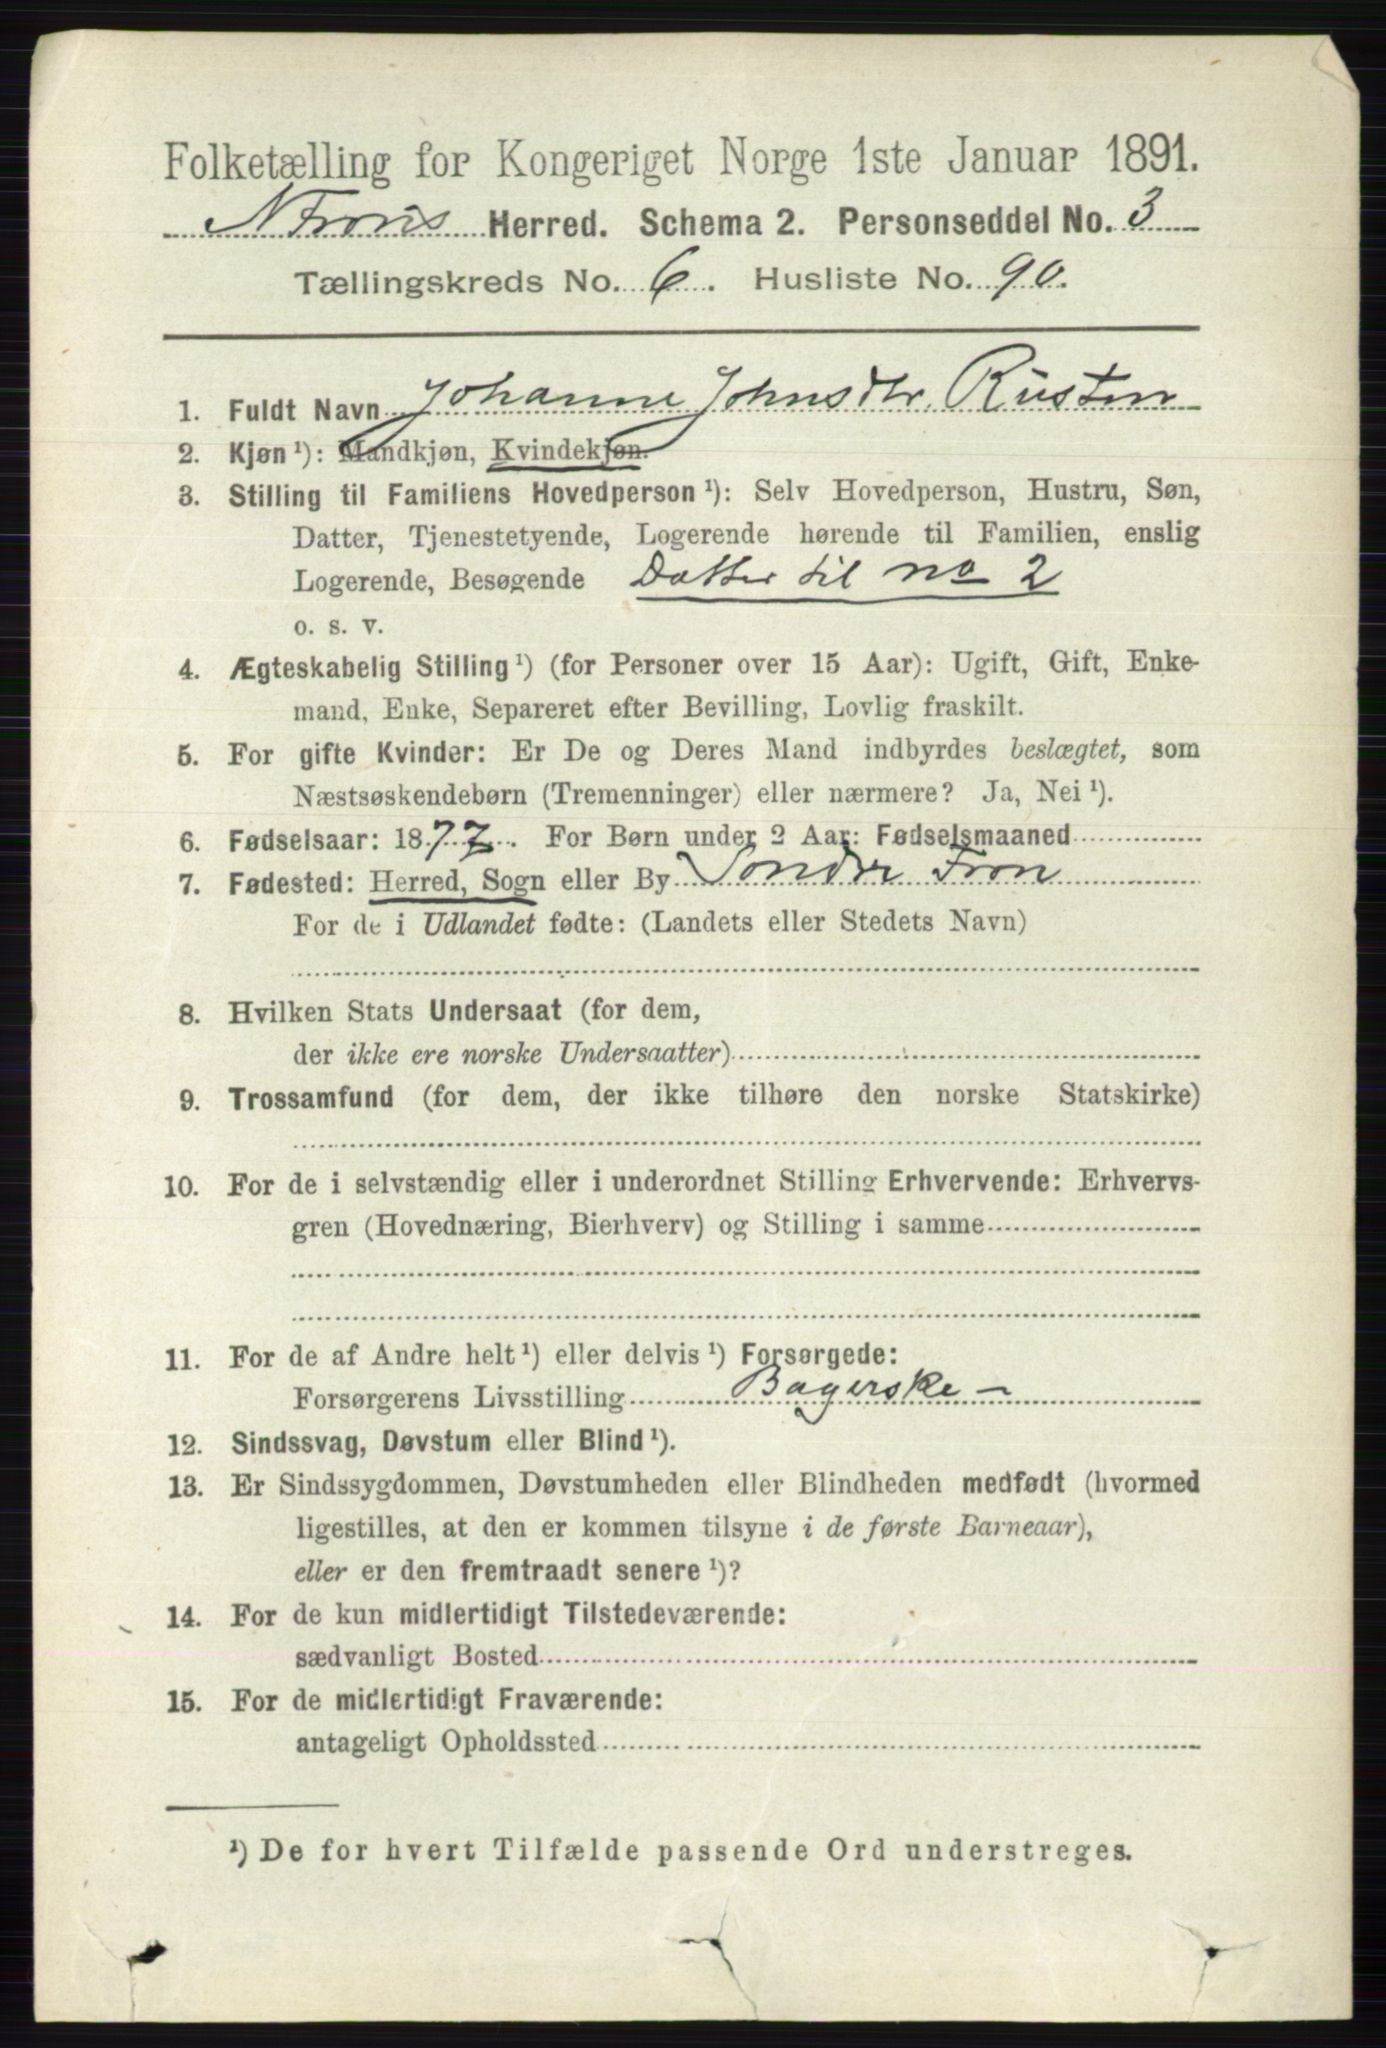 Folketælling for Kongeriget Norge 1ste Januar 1891.
N Frons Herred. Schema 2. Personseddel No. 3
Tællingskreds No. 6. Husliste No. 90.
1. Fuldt Navn Johanne Johnsdtr. Rusten
2. Kjøn ¹): Mandkjøn, Kvindekjøn.
3. Stilling til Familiens Hovedperson ¹): Selv Hovedperson, Hustru, Søn,
Datter, Tjenestetyende, Logerende hørende til Familien, enslig
Logerende, Besøgende Datter til no 2
o. s. v.
4. Ægteskabelig Stilling ¹) (for Personer over 15 Aar): Ugift, Gift, Enke-
mand, Enke, Separeret efter Bevilling, Lovlig fraskilt.
5. For gifte Kvinder: Er De og Deres Mand indbyrdes beslægtet, som
Næstsøskendebørn (Tremenninger) eller nærmere? Ja, Nei ¹).
6. Fødselsaar: 1877. For Børn under 2 Aar: Fødselsmaaned
7. Fødested: Herred, Sogn eller By Søndre Fron
For de i Udlandet fødte: (Landets eller Stedets Navn)
8. Hvilken Stats Undersaat (for dem,
der ikke ere norske Undersaatter)
9. Trossamfund (for dem, der ikke tilhøre den norske Statskirke)
10. For de i selvstændig eller i underordnet Stilling Erhvervende: Erhvervs-
gren (Hovednæring, Bierhverv) og Stilling i samme
11. For de af Andre helt ¹) eller delvis ¹) Forsørgede:
Forsørgerens Livsstilling Bagerske –
12. Sindssvag, Døvstum eller Blind ¹).
13. Er Sindssygdommen, Døvstumheden eller Blindheden medfødt (hvormed
ligestilles, at den er kommen tilsyne i de første Barneaar),
eller er den fremtraadt senere ¹)?
14. For de kun midlertidigt Tilstedeværende:
sædvanligt Bosted
15. For de midlertidigt Fraværende:
antageligt Opholdssted
¹) De for hvert Tilfælde passende Ord understreges.